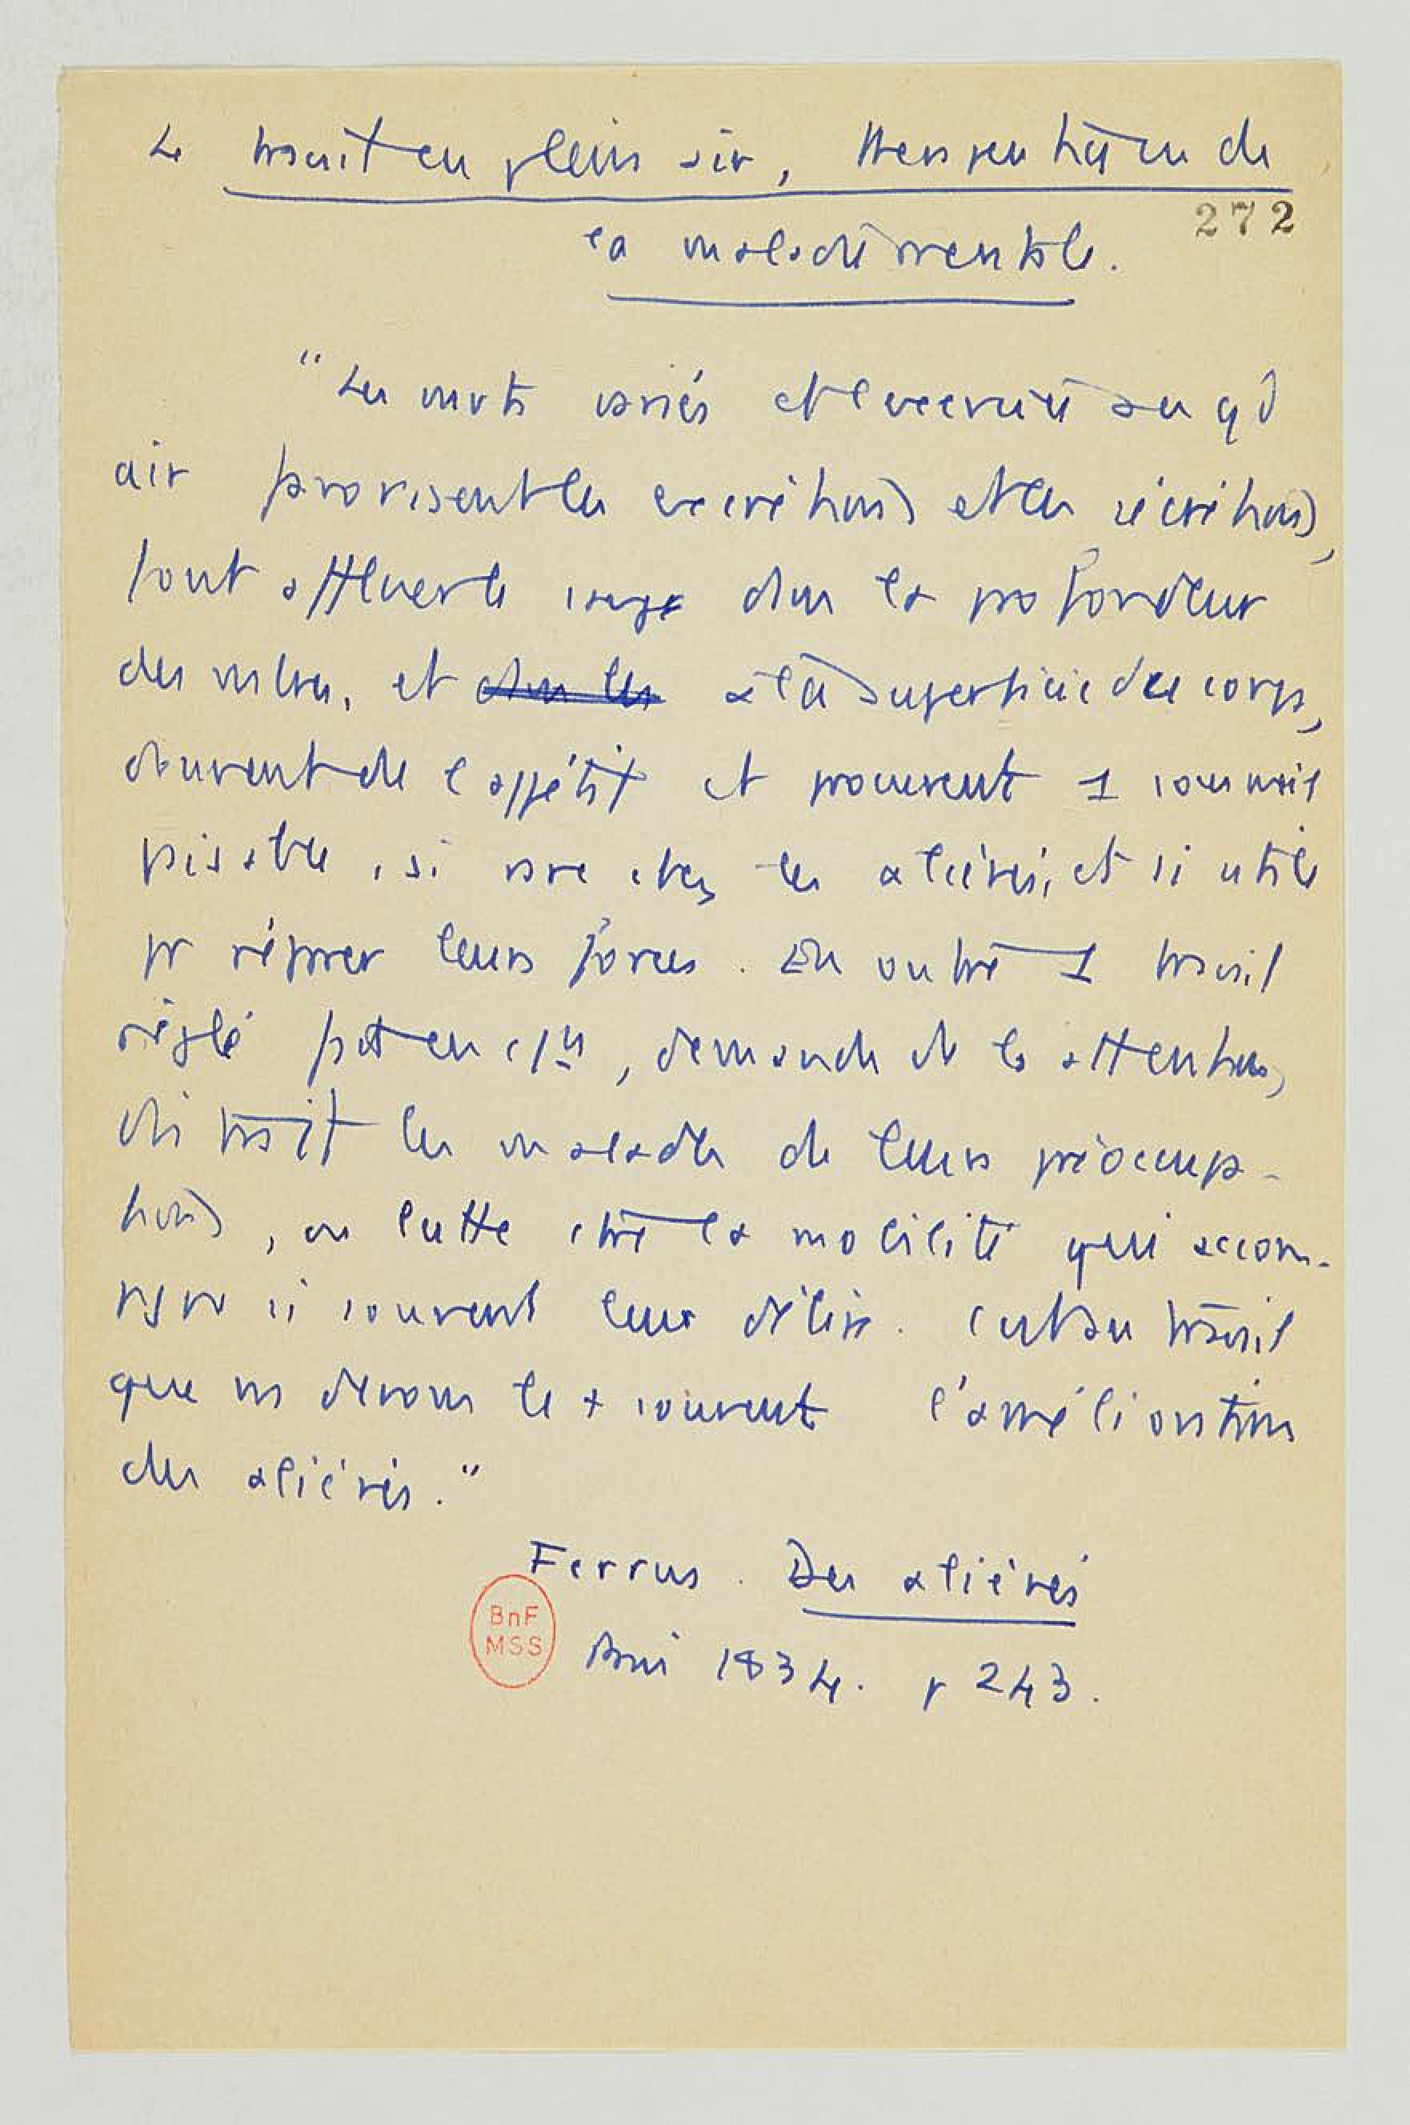 Le travail en plein air, thérapeutique de
272
la maladie mentale.
"Les mvts variés et l'exercice au gd
air favorisent les excrétions et les sécrétions,
font affluer le sang dans la profondeur
des mbres, et dans les à la superficie du corps,
donnent de l'appétit et procurent 1 sommeil
paisible, si rare chez les aliénés, et si utile
pr réparer leurs forces. En outre 1 travail
réglé fait en c/un, demande de la attention,
distrait les malades de leurs préoccupa-
tions, on lutte ctre la mobilité qui accom-
pagne si souvent leur délire. C'est au travail
que ns devons le + souvent l'amélioration
des aliénés."
Ferrus. Des aliénés
BnF
MSS
Paris 1834. p 243.